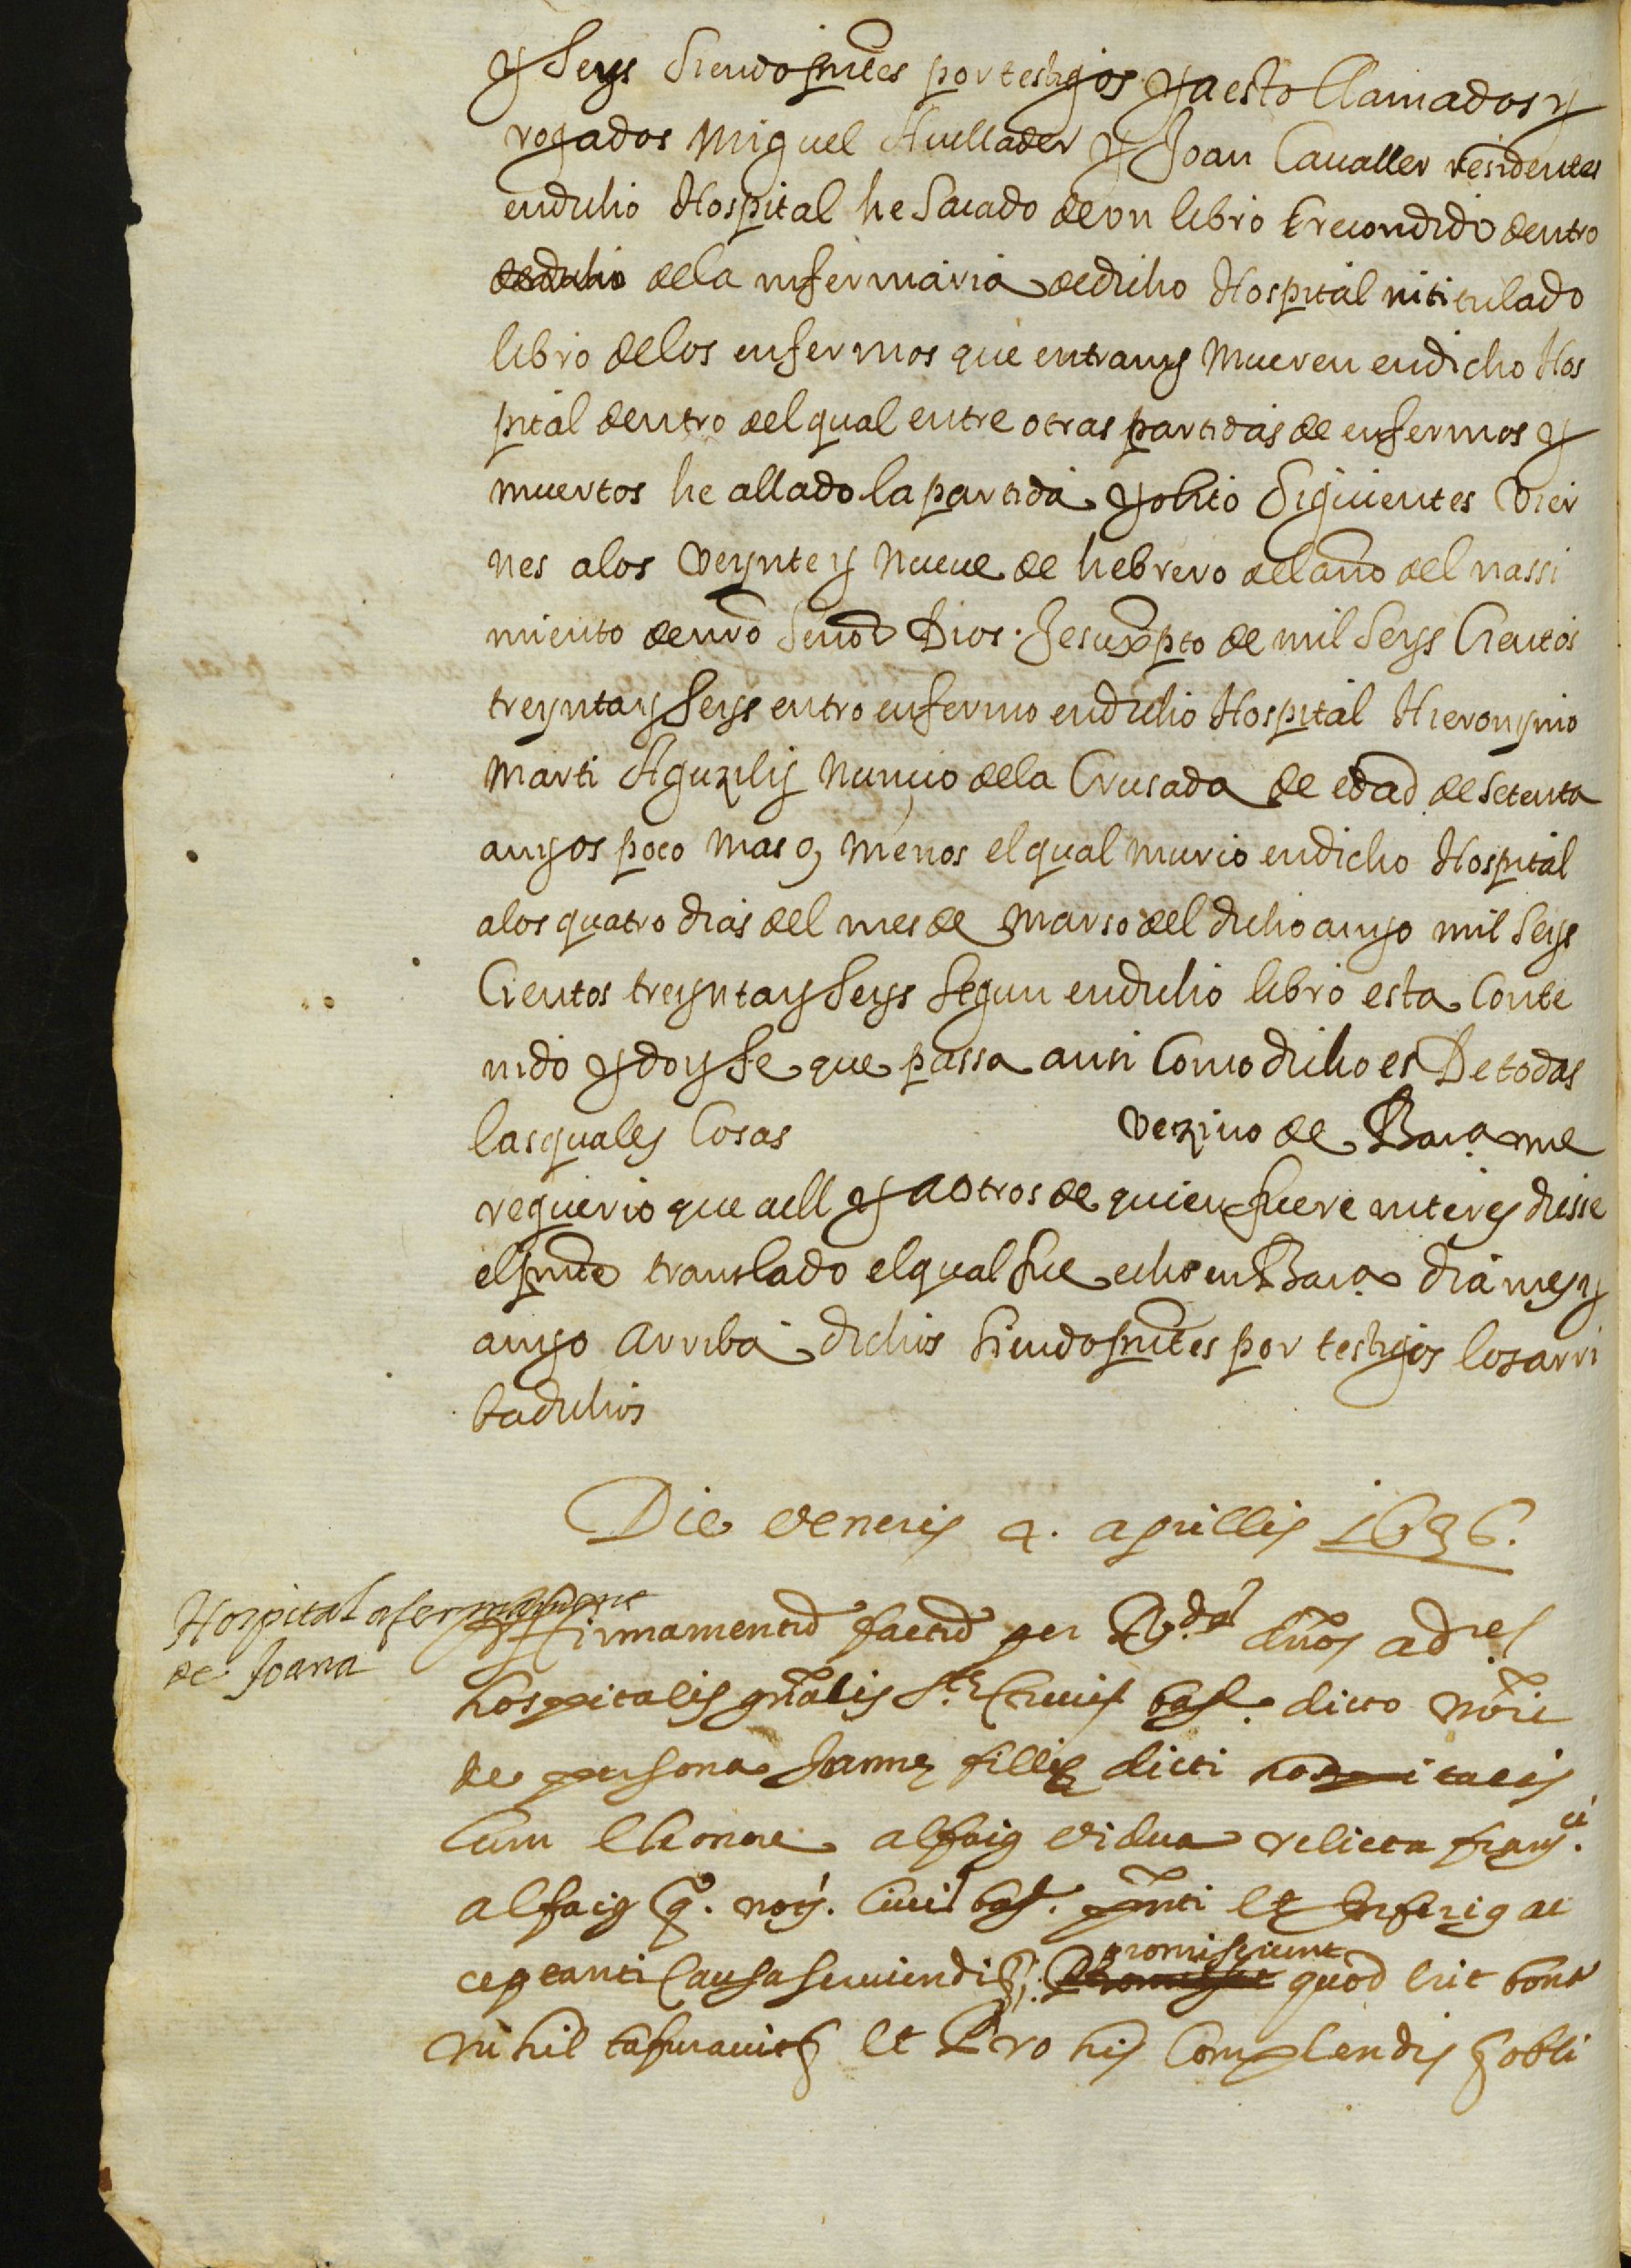 y seys siendo pntes por testigos y a esto llamados y
rogados Miguel Avellader y Joan Cavaller residentes
en dicho Hospital he sacado de un libro recondido dentro
de dicho de la infermaria de dicho Hospital intitulado
libro de los enfermos que entran y mueren en dicho Hos
pital dentro del qual entre otras partidas de enfermos y
muertos he allado la partida y obito siguientes Vier
nes a los veynte y nueve de hebrero del año del nassi
miento de nro señor Dios Jesuxpto de mil seys cientos
treynta y seys entro enfermo en dicho Hospital Hieronymo
Marti Aguzily nuncio de la Crusada de edad de setenta
anyos poco mas o menos el qual murio en dicho Hospital
a los quatro dias del mes de Marso del dicho anyo mil seys
cientos treynta y seys segun en dicho libro esta conte
nido y doy fe que passa ansi como dicho es De todas
las quales cosas vezino de Bara. me
requerio que a ell y a otros de quien fuere interes diesse
el pnte translado el qual fue echo en Bara. dia mes y
anyo arriba dichos siendo pntes por testigos los arri
ba dichos
Die veneris 4. aprillis 1636.
Hospital afermament
de Joana
Affirmamentũ factũ per Rdos dños adres
hospitalis gñalis Ste Crucis dicto nõie
de persona Joanne fillie dicti hospitalis
cum Eleonore alfaig vidua relicta franci.
alfaig q. noy. civis pñti et
ceptanti causa serviendi promiserunt quod erit bona
nihil et Pro his complendis obli